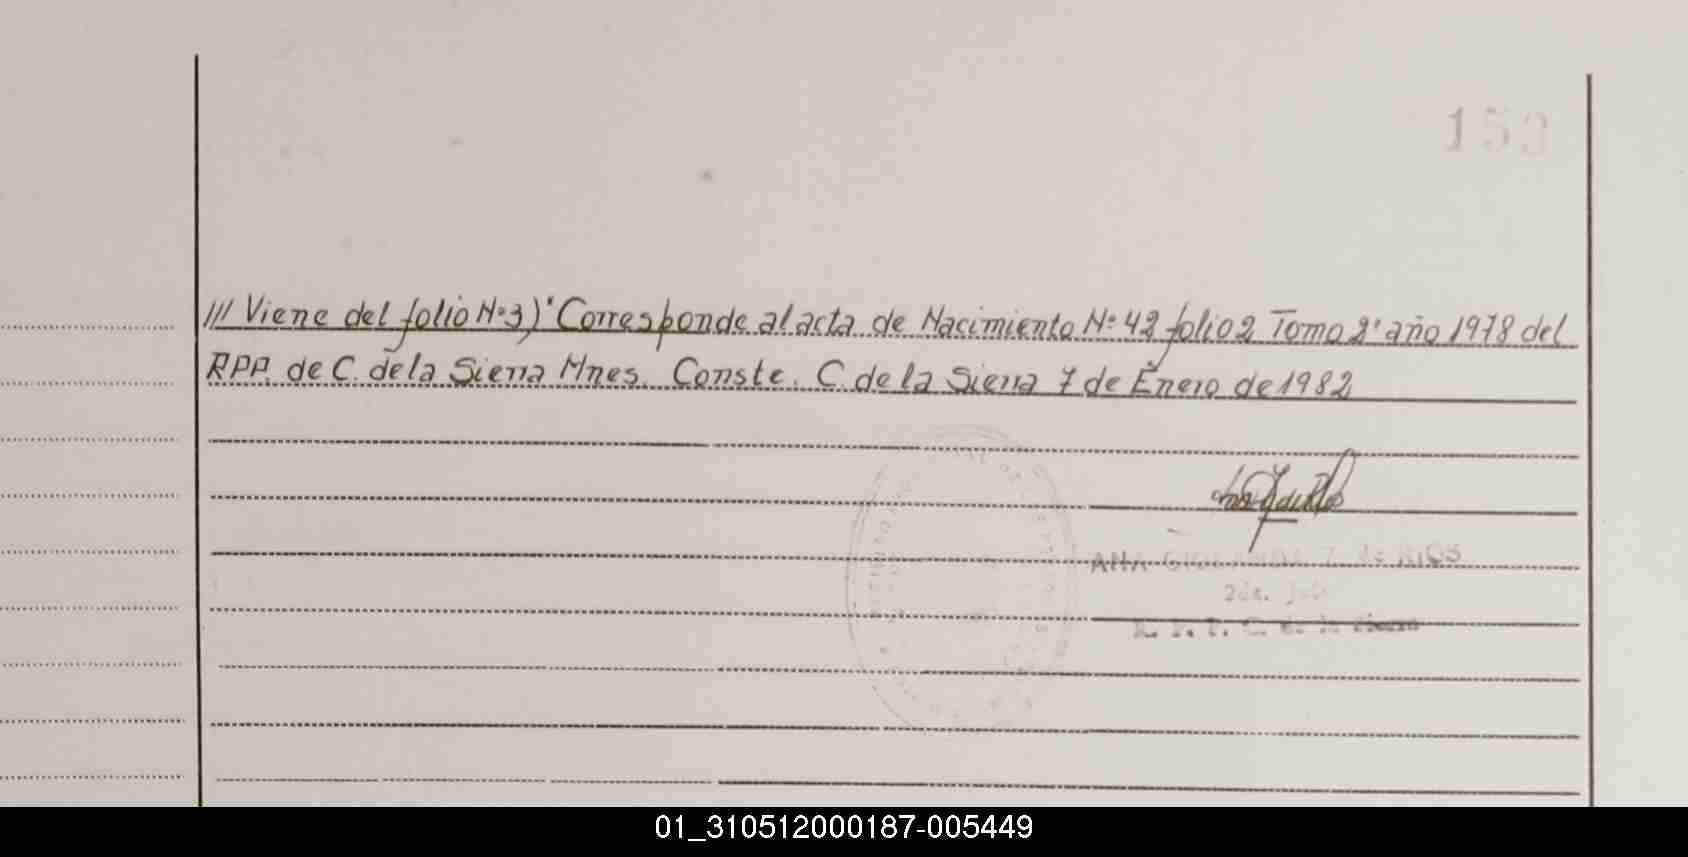 153
/// Viene del folio Nº3) "Corresponde al acta de Nacimiento Nº 42 folio 2 Tomo 2º año 1978 del
RPP. de C. de la Sierra Mnes. Conste. C. de la Sierra 7 de Enero de 1982
ANA Z. de RIOS
R. P. P. C. de la Sierra
01_310512000187-005449